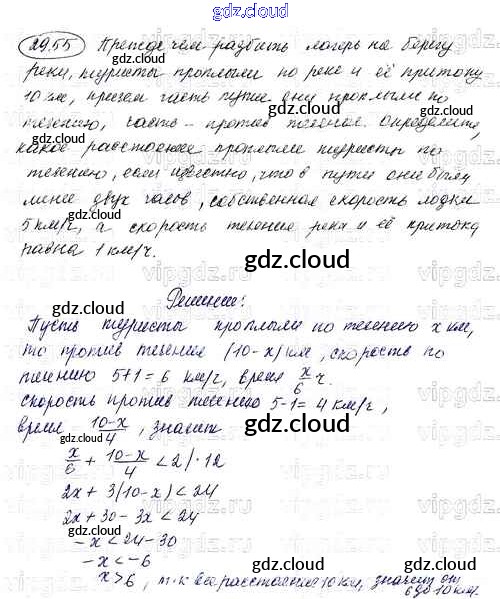 gdz.cloud
29.55 Прежде чем разбить лагерь на берегу
реки, туристы проплыли по реке и её притоку
10 км, причем часть пути они проплыли по
течению, часть - против течения. Определите,
какое расстояние проплыли туристы по
течению, если известно, что в пути они были
менее двух часов, собственная скорость лодки
5 км/ч, а скорость течения реки и её притока
равна 1 км/ч.
Решение:
Пусть туристы проплыли по течению x км,
то против течения (10-x) км, скорость по
течению 5+1=6 км/ч, время x/6 ч.
скорость против течения 5-1=4 км/ч,
время (10-x)/4, значит
x/6 + (10-x)/4 < 2 | · 12
2x + 3(10-x) < 24
2x + 30 - 3x < 24
-x < 24-30
-x < -6
x > 6, т.к все расстояние 10 км, значит от
6 до 10 км.